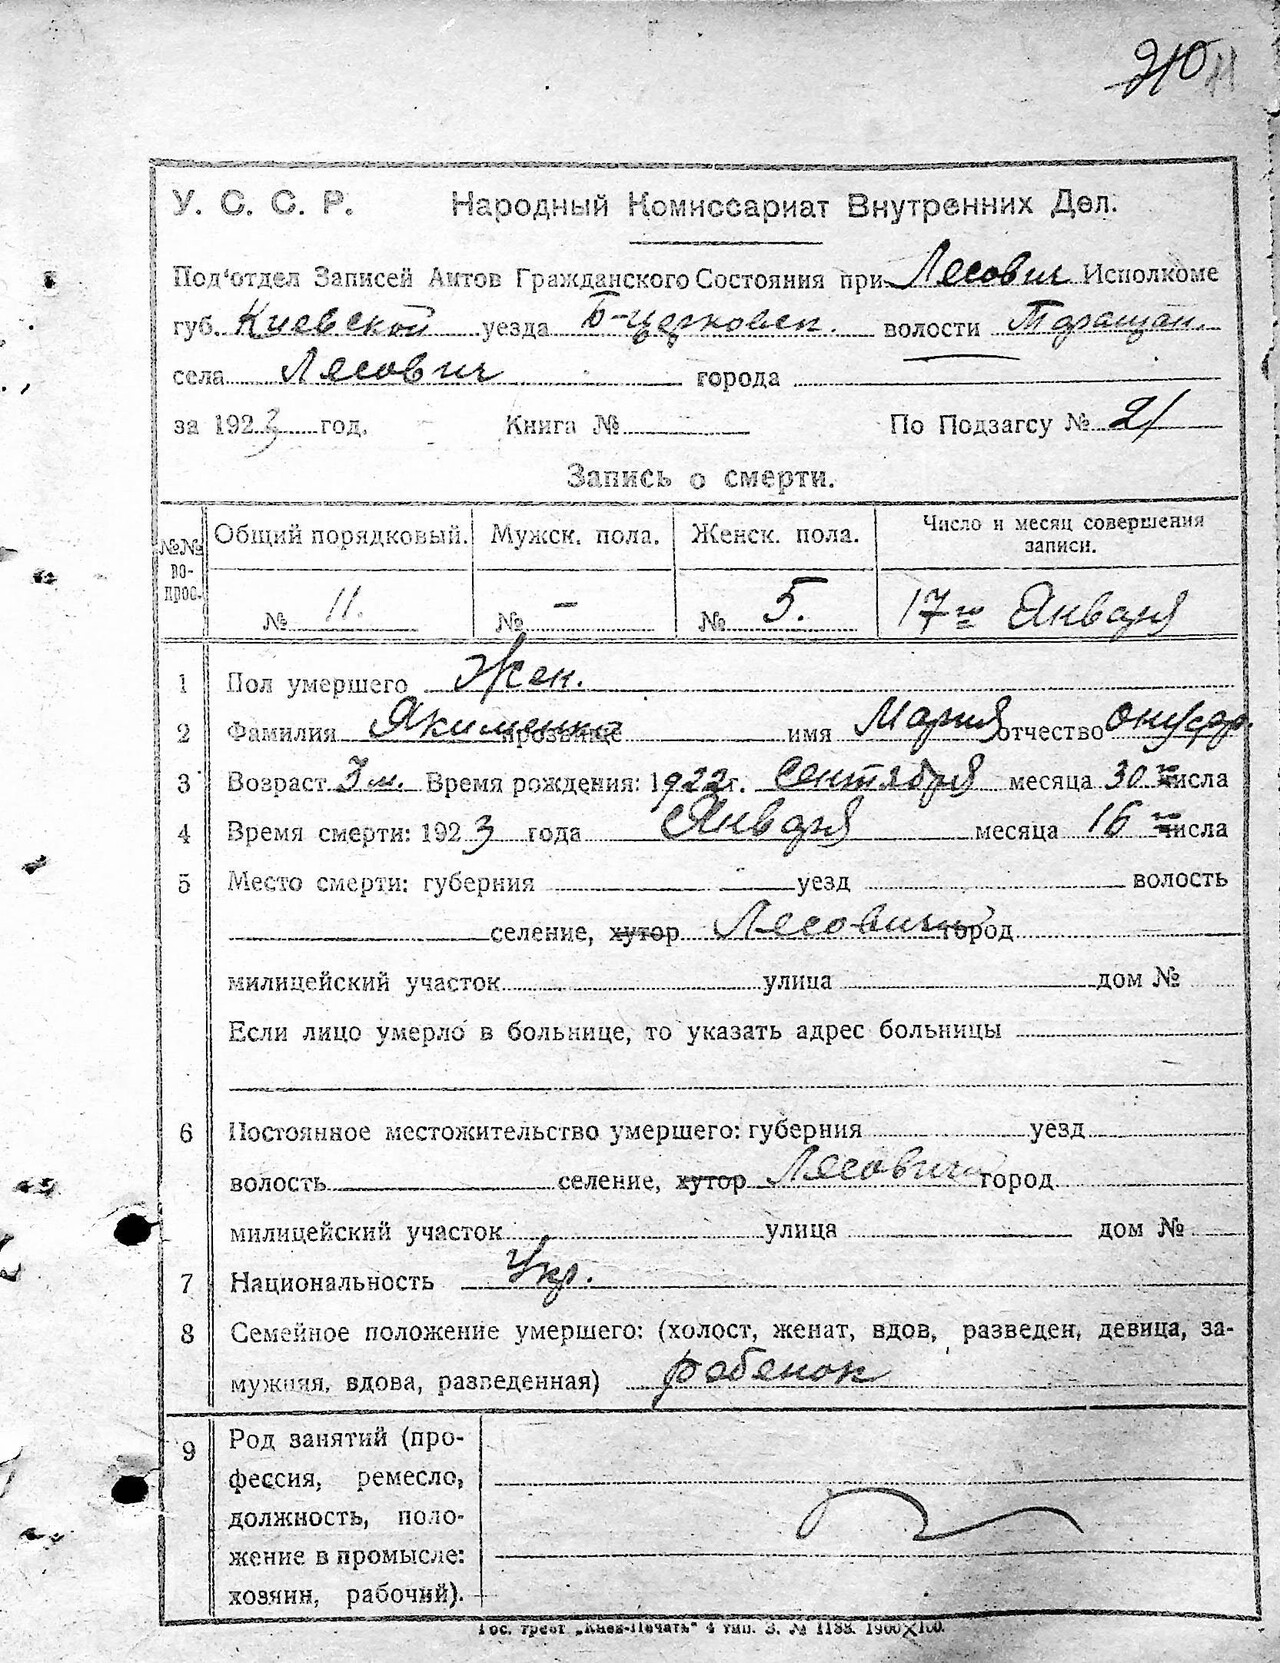 210
У. С. С. Р. Народный Комиссариат Внутренних Дел.
Под'отдел Записей Актов Гражданского Состояния при Лесович Исполкоме
губ. Киевской уезда Б-Церковск. волости Таращан.
села Лесович города
за 1923 год. Книга № По Подзагсу № 21
Запись о смерти.
№№ вопрос. Общий порядковый. Мужск. пола. Женск. пола. Число и месяц совершения записи.
№ 11. № – № 5. 17го Января
1 Пол умершего Жен.
2 Фамилия Якименко прозвище имя Мария отчество
3 Возраст 3 м. Время рождения: 1922 г. Сентября месяца 30 числа
4 Время смерти: 1923 года Января месяца 16 числа
5 Место смерти: губерния уезд волость
селение, хутор Лесовичи город
милицейский участок улица дом №
Если лицо умерло в больнице, то указать адрес больницы
6 Постоянное местожительство умершего: губерния уезд
волость селение, хутор Лесовичи город
милицейский участок улица дом №
7 Национальность Укр.
8 Семейное положение умершего: (холост, женат, вдов, разведен, девица, за-
мужняя, вдова, разведенная) ребенок
9 Род занятий (про-
фессия, ремесло,
должность, поло-
жение в промысле:
хозяин, рабочий).
Гос. трест „Киев-Печать" 4 тип. З. № 1188. 1900×100.